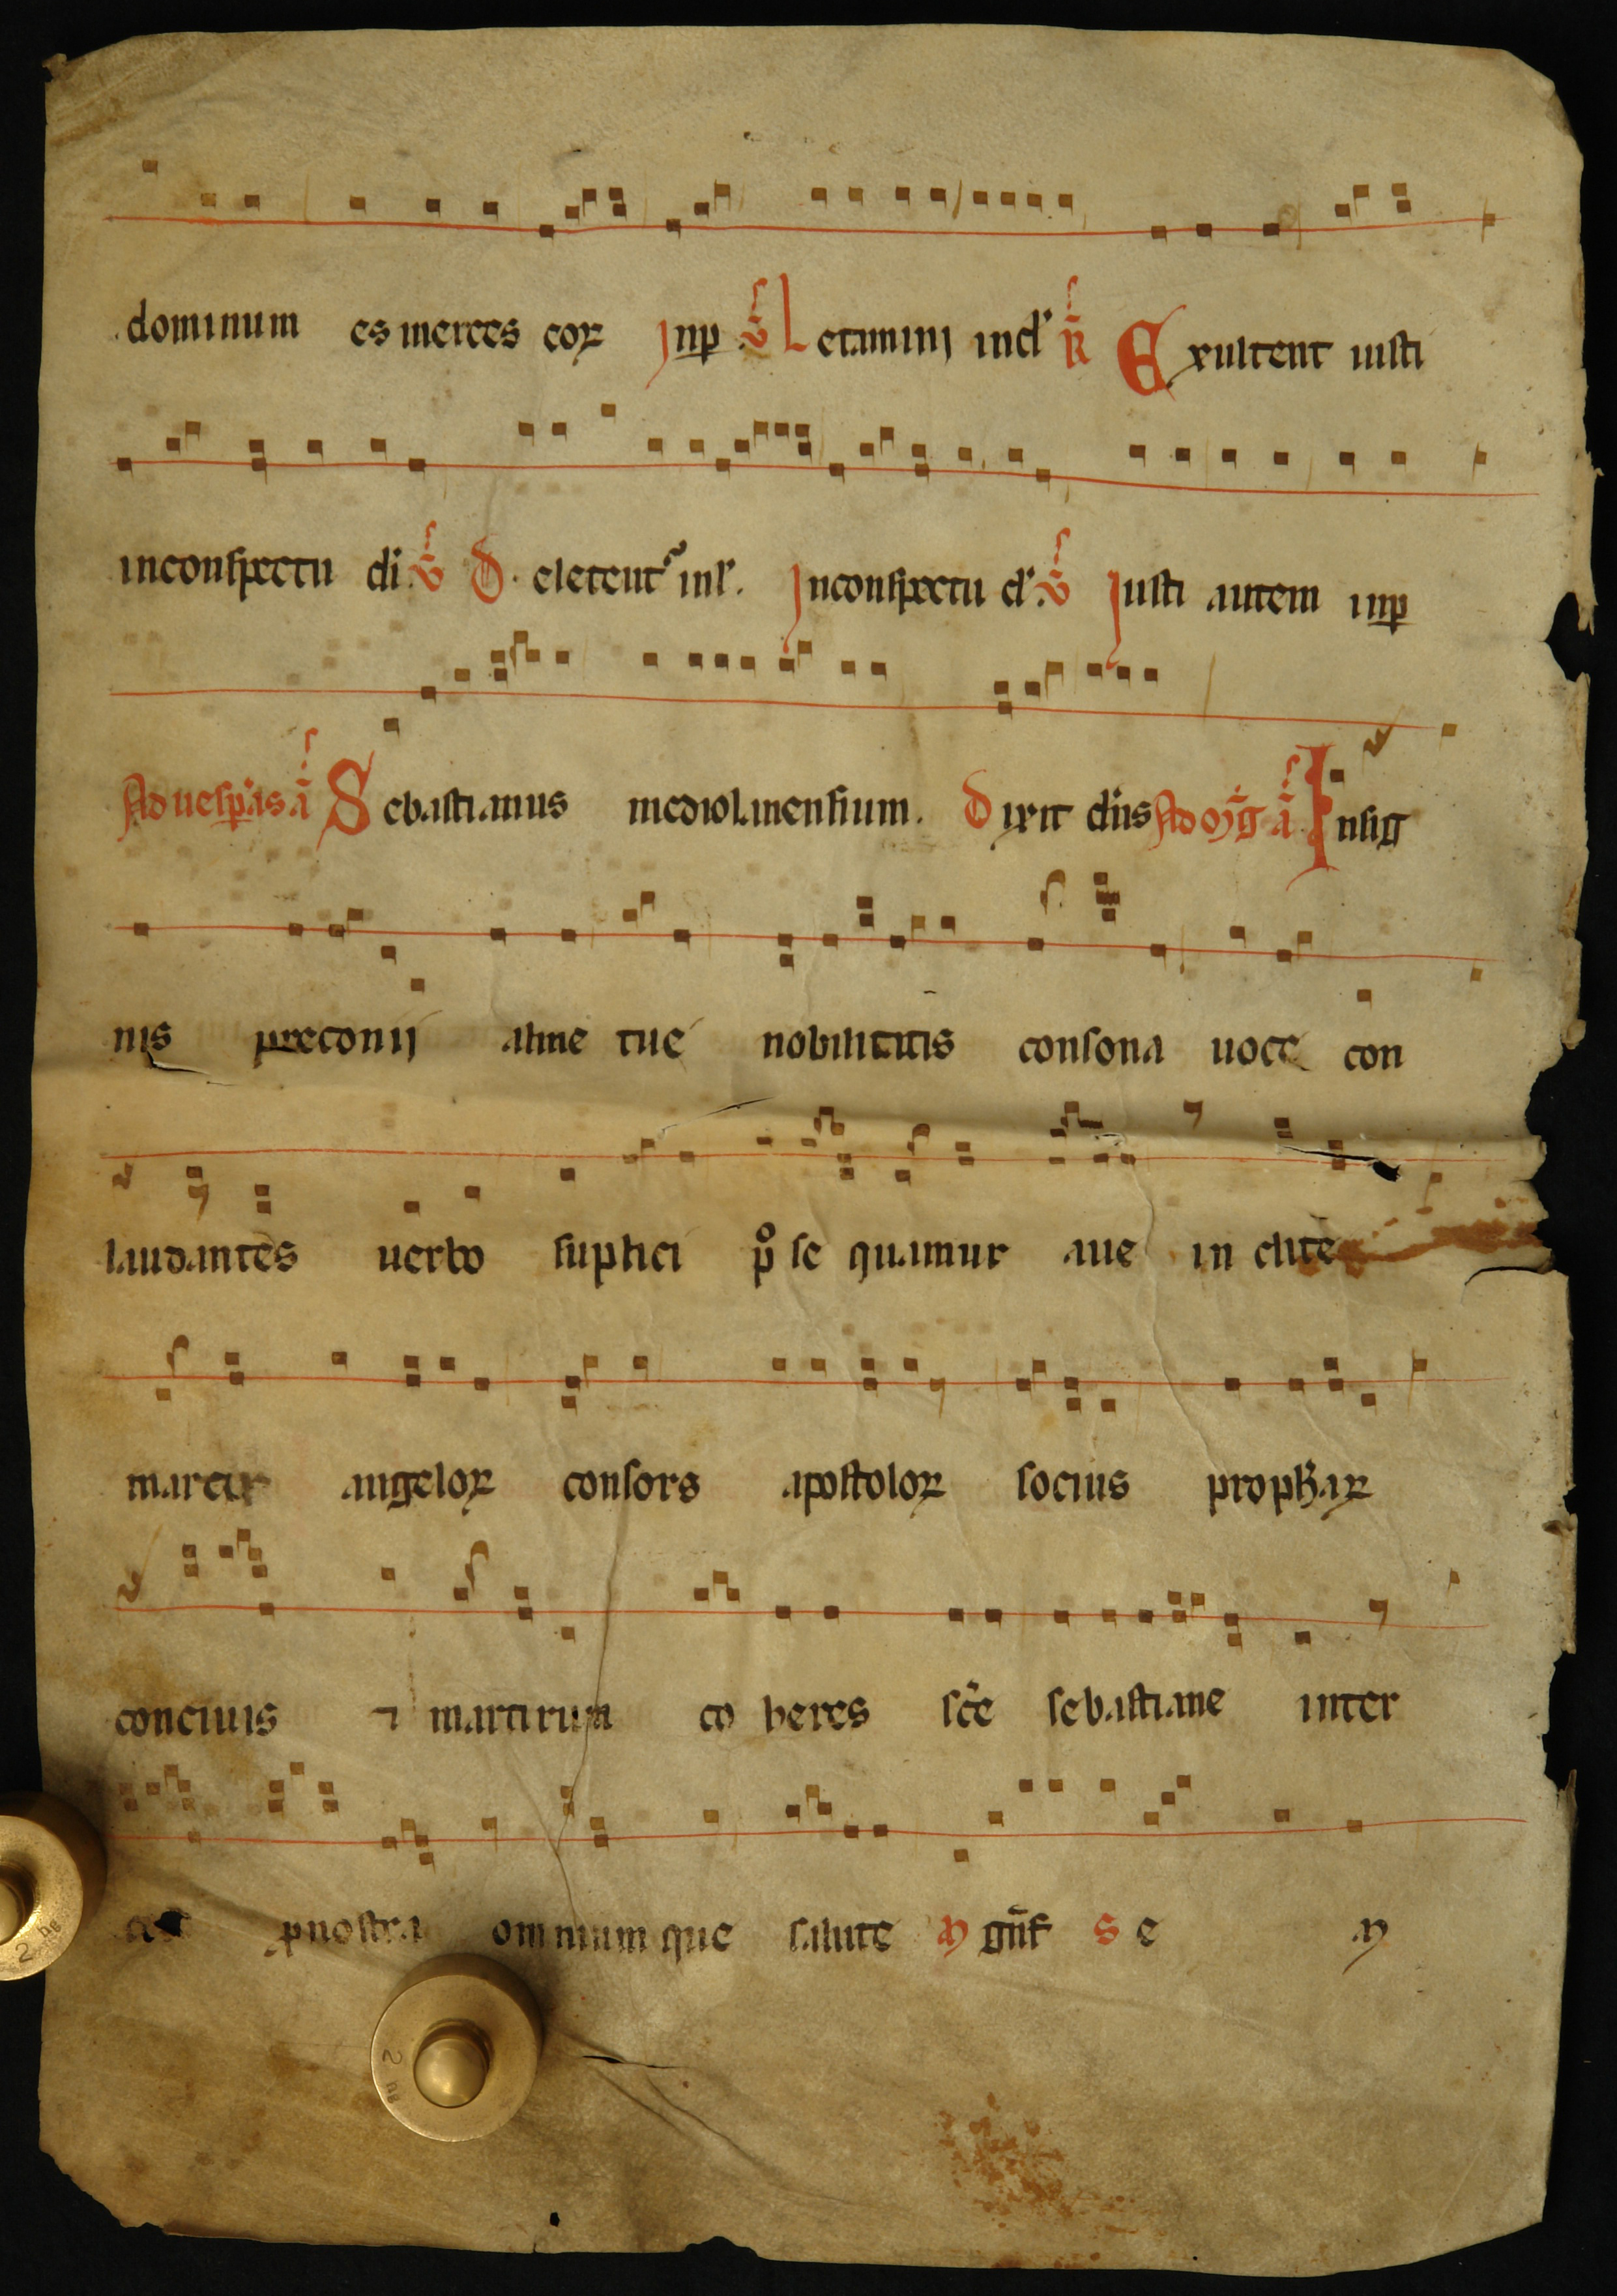 dominum es merces coꝝ Inp ℣ Letaminj in dˈ ℟ Exultent iusti
in conspectu di ℣ Deletentˀ inlˈ. In conspectu dˈ ℣ Iusti autem inp
Ad uesꝑas a̅ Sebastianus mediolanensium. Dixit dn̅s Ad m̅g a̅ Insig
nis preconij alme tue nobilitatis consona uoce con
laudantes uerbo suplici p̊ se quamur aue in clite
martir angeloꝝ consors apostoloꝝ socius prophaꝝ
conciuis ⁊ martirum co heres sc̅e sebastiane inter
p nostra omnium que salute M gn̅f S e